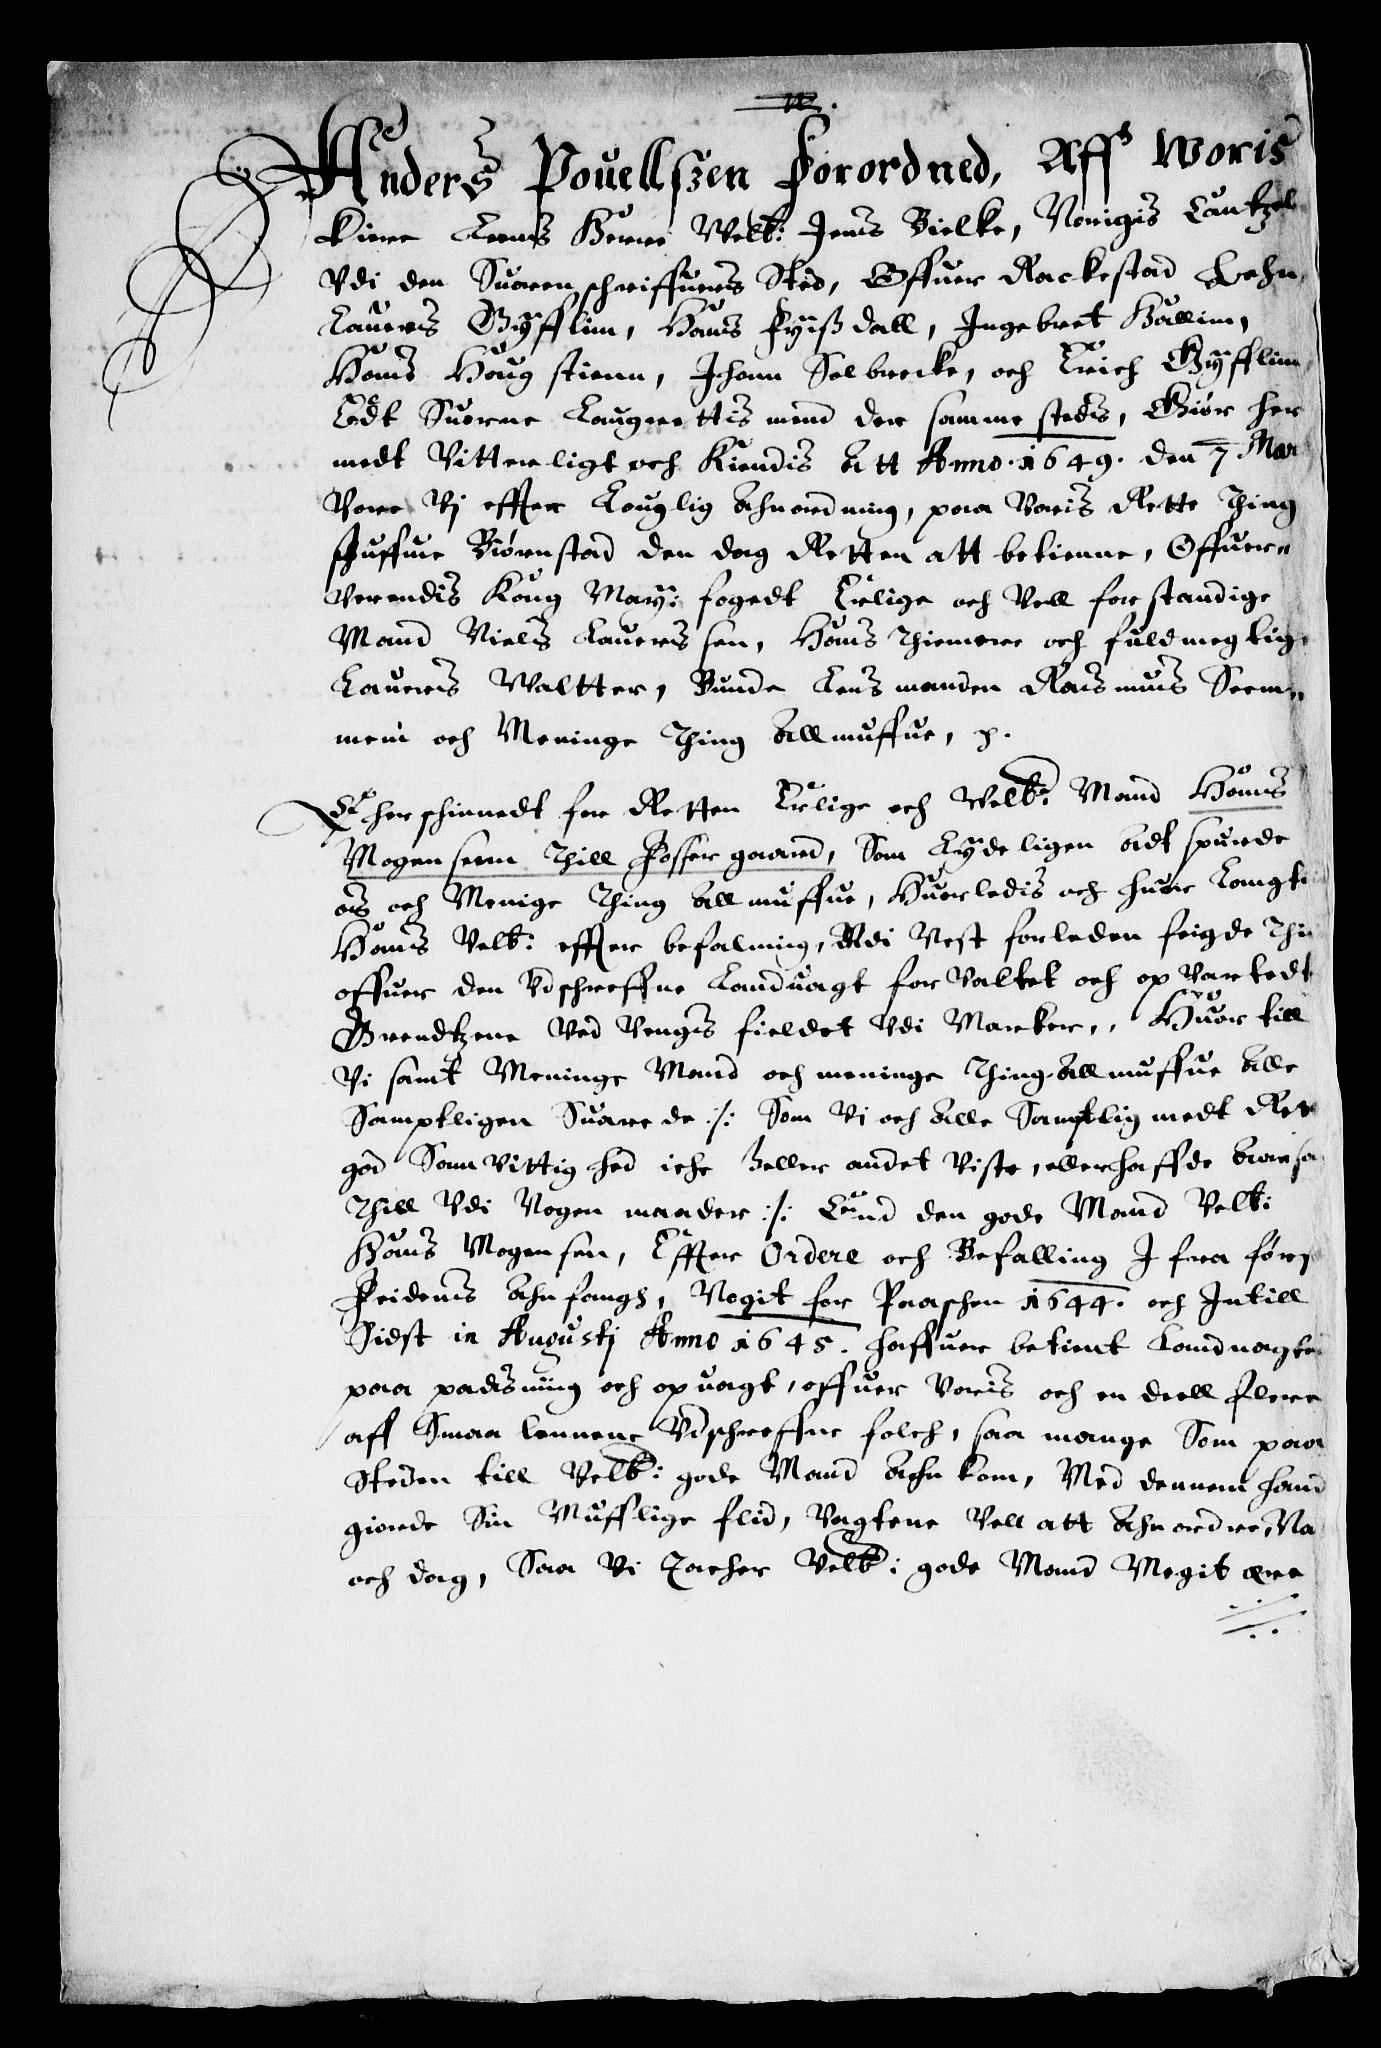 Anders Pouellszen Forordned, Aff Woris
kiere Lens Herre Welb: Jens Bielke, Norigis Cantzel
Vdi den Suoren schriffuers Sted, Offuer Rackestad Lehn,
Lauers Gyfflim, Hans Fyißdall, Ingebret Hallim,
Hans Houg stienn, Johann Solbrecke, och Erich Gyfflim
Edt Suorne Laugrettis mend der samme stedis, Giør her
medt Vitterligt och Kiendis Att Anno. 1649. den 7 Mar
Vore Vj effter Louglig Ahnordning, paa Voris Rette Thing
stuffue Biørnstad den dag Retten att betienne, Offuer
verendis Kong May: fogedt Erlige och Vell forstandige
Mand Niels Lauers sen, Hans Thienere och fuldmegtig
Lauers Waltter, Bunde Lens manden Rasmus Seem
mein och Meninge Thing Allmuffue, p.
Er her schinnedt for Retten Erlige och Welb: Mand Hans
Mogenseen Thill Fosser gaard, Som Lydeligen Adt spurde
os och Menige Thing Allmuffue, Huorledis och huor Langti
Hans Velb: effter befalning, Vdi Nest forleden feigde Thi
offuer den Vdschreffne Landuagt for Valtet och op Vartedt
Grendtzene Ved Vengis fieldet Vdi Marker,, Huor till
Vi samt Meninge Mand och meninge Thing Allmuffue Alle
Samptligen Suarede :/: Som Vi och Alle Samptlig medt Ret
god Samvittighed iche Heller andet Viste, eller haffde Aarsa
Thill Vdi Nogen maader :/: End den gode Mand Velb:
Hans Mogensen, Effter Ordere och Befalling J fra førs
Feidens Ahnfangh, Nogit for Paaschen 1644. och Jntill
Sidst in Augustj Anno 1645. haffuer betient Landuagten
paa padisning och opuagt, offuer Voris och en deell flere
aff Smaa lennene Vdschreffne folch, saa mange Som paa
Steden till Velb: gode Mand Ahn kom, Med dennem hand
giorde Sin Mufflige flid, Vagtene Vell att Ahnordre, Na
och dag, Saa Vi Tacher Velb: gode Mand Megit ære